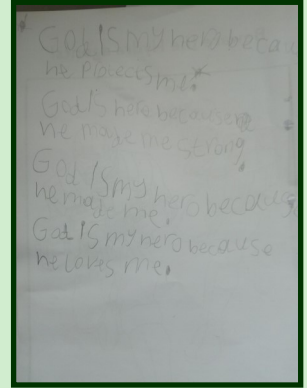 God IS my hero becau
he ploiccts me.
God IS hero because
he made me strong.
God IS my hero because
he made me.
God IS my hero because
he loves me.